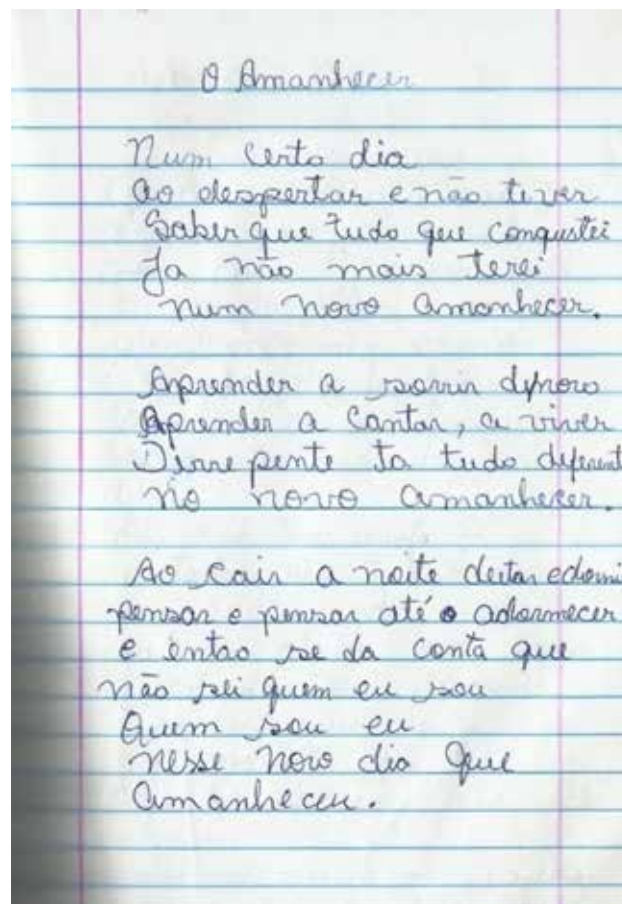 O Amanhecer
Num certo dia
ao despertar e não tiver
Saber que tudo que conquistei
Ja não mais terei
num novo amanhecer.
Aprender a sorrir dinovo
Aprender a Cantar, a viver
Dirrepente ta tudo diferent
no novo amanhecer.
Ao cair a noite deitar edormi
pensar e pensar até o adormecer
e entao se da conta que
não sei quem eu sou
Quem sou eu
nesse novo dia que
amanheceu.